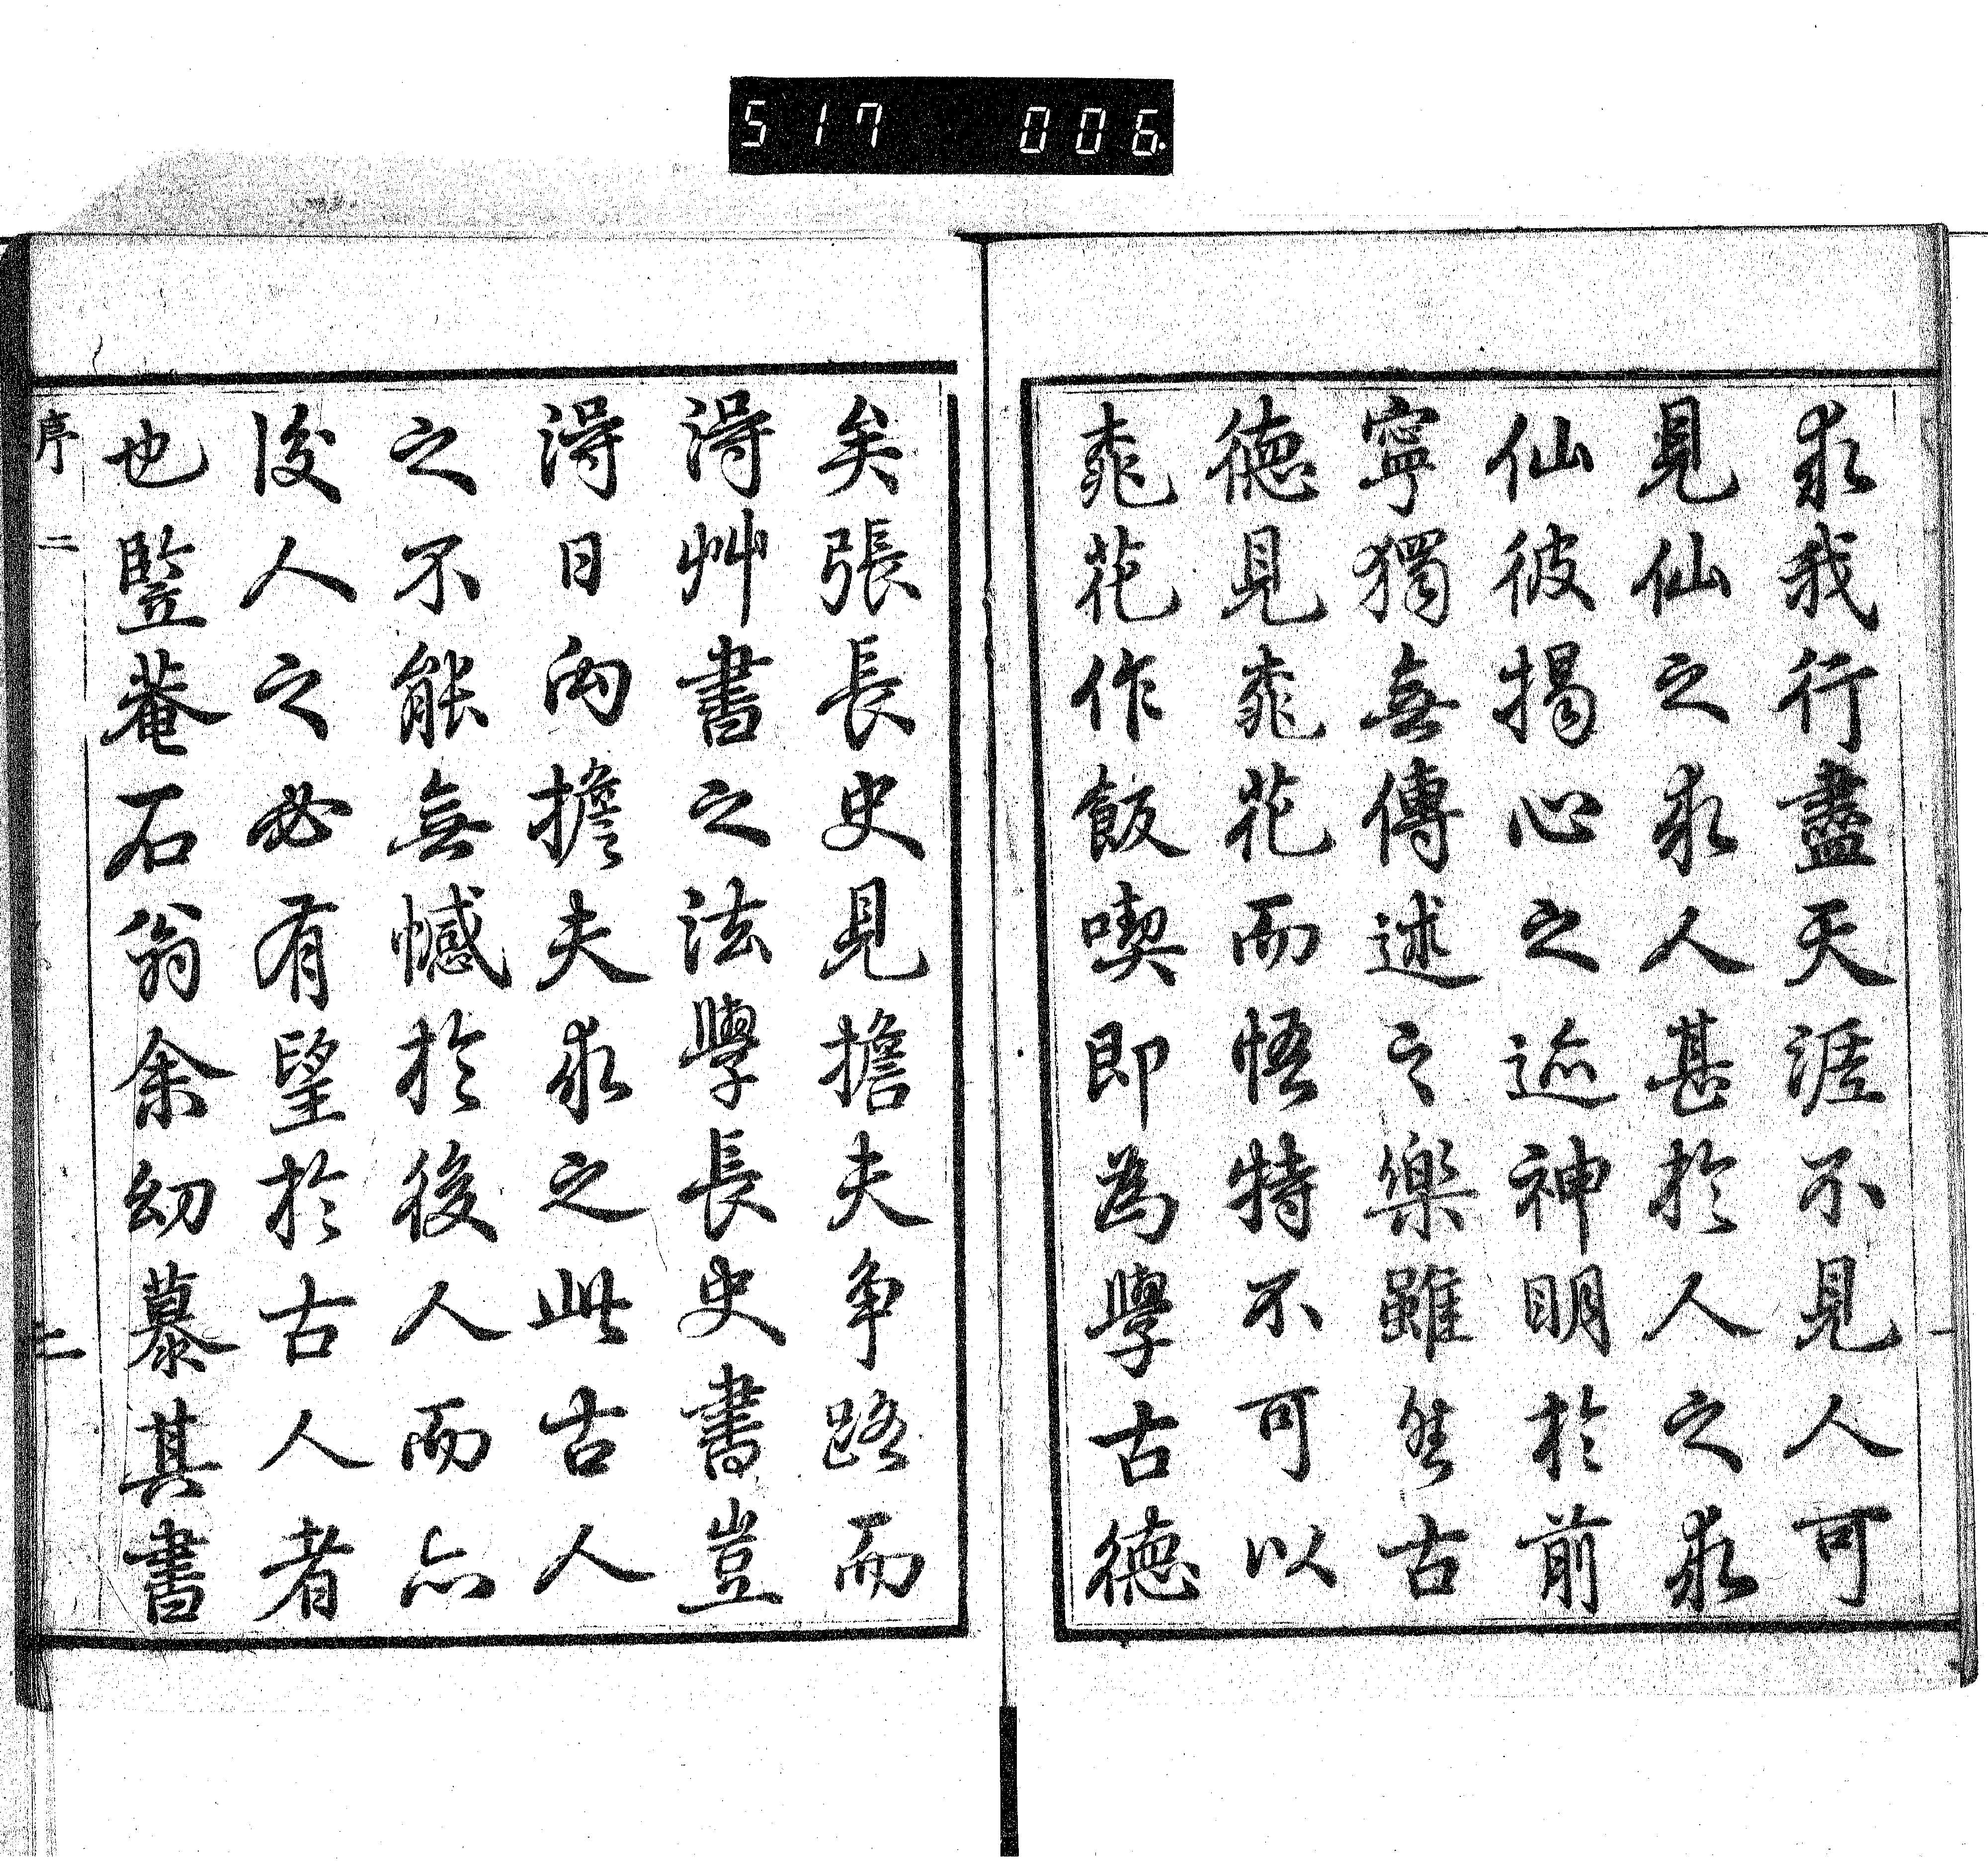 517 006
求我行盡天涯不見人可
見仙之求人甚於人之求
仙彼揭心之迹神明於前
寧獨無傳述之樂雖然古
德見桃花而悟特不可以
桃花作飯喫即為學古德
矣張長史見擔夫争路而
得艸書之法學長史書豈
得日向擔夫求之此古人
之不能無憾於後人而亦
後人之必有望於古人者
也豎菴石翁余幼慕其書
序二
二